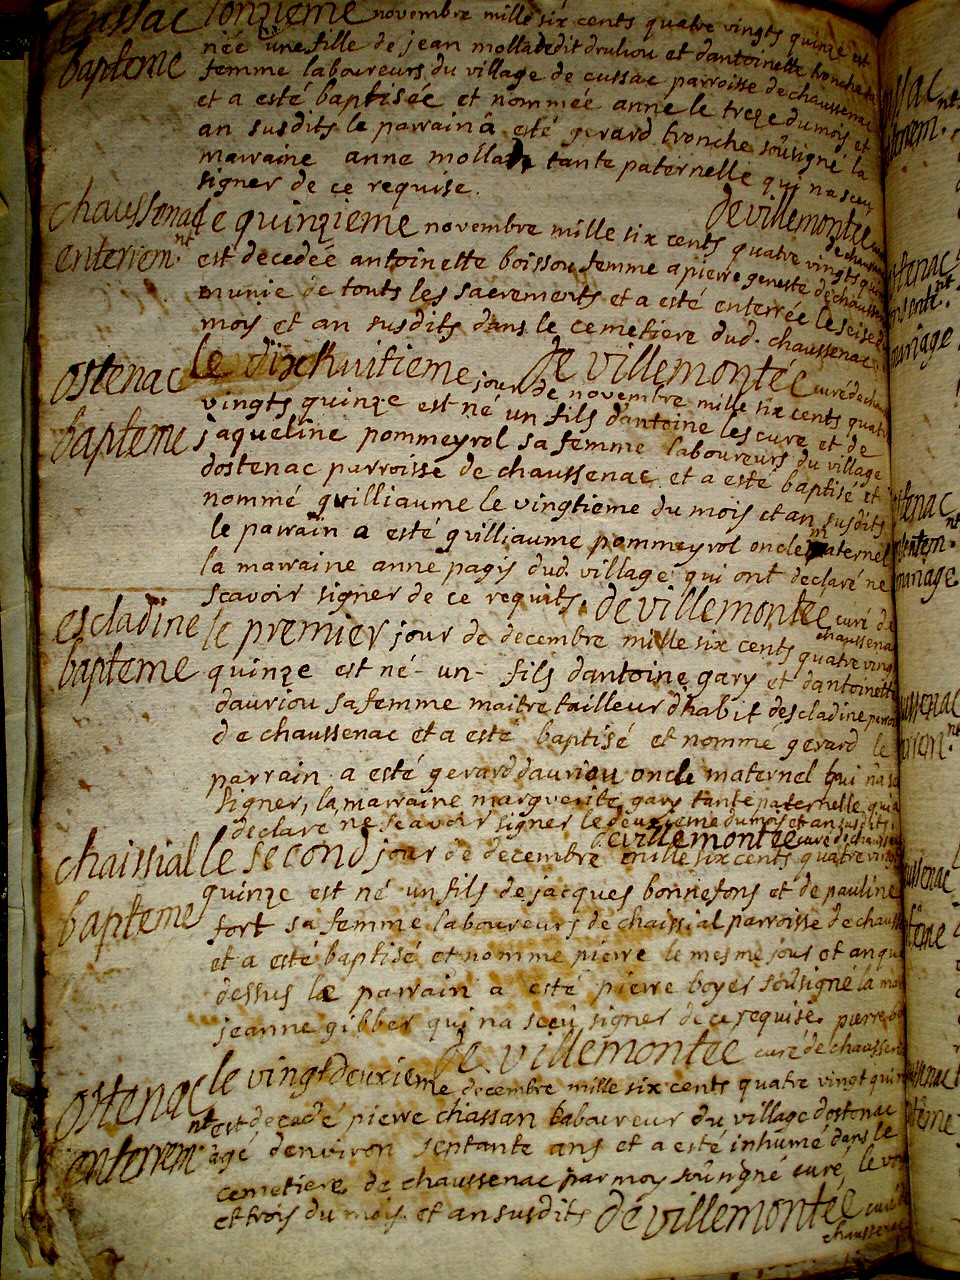 Cussac
bapteme
lonzieme novembre mille six cents quatre vingts quinze est
née une fille de jean mollat dit druliou et dantoinette tronche sa
femme laboureurs du village de cussac parroisse de chaussenac
et a esté baptisée et nommée anne le treze du mois et
an susdits le parrain a esté gerard tronche soûsigné la
marraine anne mollat tante paternelle qui na sceu
signer de ce requise.
de villemontée curé
de chaussenac
chaussenac
enterrem.nt
le quinzieme novembre mille six cents quatre vingts quinze
est decedeé antoinette boissou femme a pierre geneste de chaussenac
munie de touts les sacrements et a esté enterrée le seise du
mois et an susdits dans le cemetiere dud. chaussenac
de villemontée curé de chaussenac
ostenac
bapteme
le dixhuitieme jour de novembre mille six cents quatre
vingts quinze est né un fils dantoine lescure et de
jaqueline pommeyrol sa femme laboureurs du village
dostenac parroisse de chaussenac et a esté baptisé et
nommé guilliaume le vingtieme du mois et an susdits
le parrain a esté guilliaume pommeyrol oncle maternel
la marraine anne pagis dud. village qui ont declaré ne
scavoir signer de ce requits. de villemontée curé de
chaussenac
escladine
bapteme
le premier jour de decembre mille six cents quatre vingt
quinze est né un fils dantoine gary et dantoinette
dauriou sa femme maitre tailleur dhabit descladine parroisse
de chaussenac et a esté baptisé et nommé gerard le
parrain a esté gerard dauriou oncle maternel qui na sceu
signer, la marraine marguerite gary tante paternelle qui a
declaré ne scavoir signer le deuxieme du mois et an susdits.
de villemontée curé de chaussenac
chaissial
bapteme
le second jour de decembre mille six cents quatre vingt
quinze est né un fils de jacques bonnefons et de pauline
fort sa femme laboureurs de chaissial parroisse de chaussenac
et a esté baptisé et nomme pierre le mesme jour et an que
dessus le parrain a esté pierre boyer soûsigné la marraine
jeanne gibber qui na sceu signer de ce requise. pierre
de villemontée curé de chaussenac
ostenac
enterrem.nt
le vingtdeuxieme decembre mille six cents quatre vingt quinze
est decedé pierre chassan laboureur du village dostenac
agé denviron septante ans et a esté inhumé dans le
cemetiere de chaussenac par moy soûsigné curé, le vingt
et trois du mois et an susdits de villemontée curé de
chaussenac